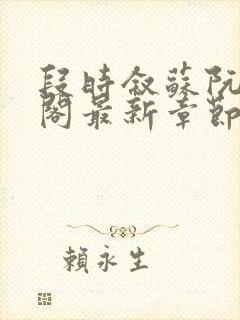 段時敘蘇阮
閣最新章節
賴永生